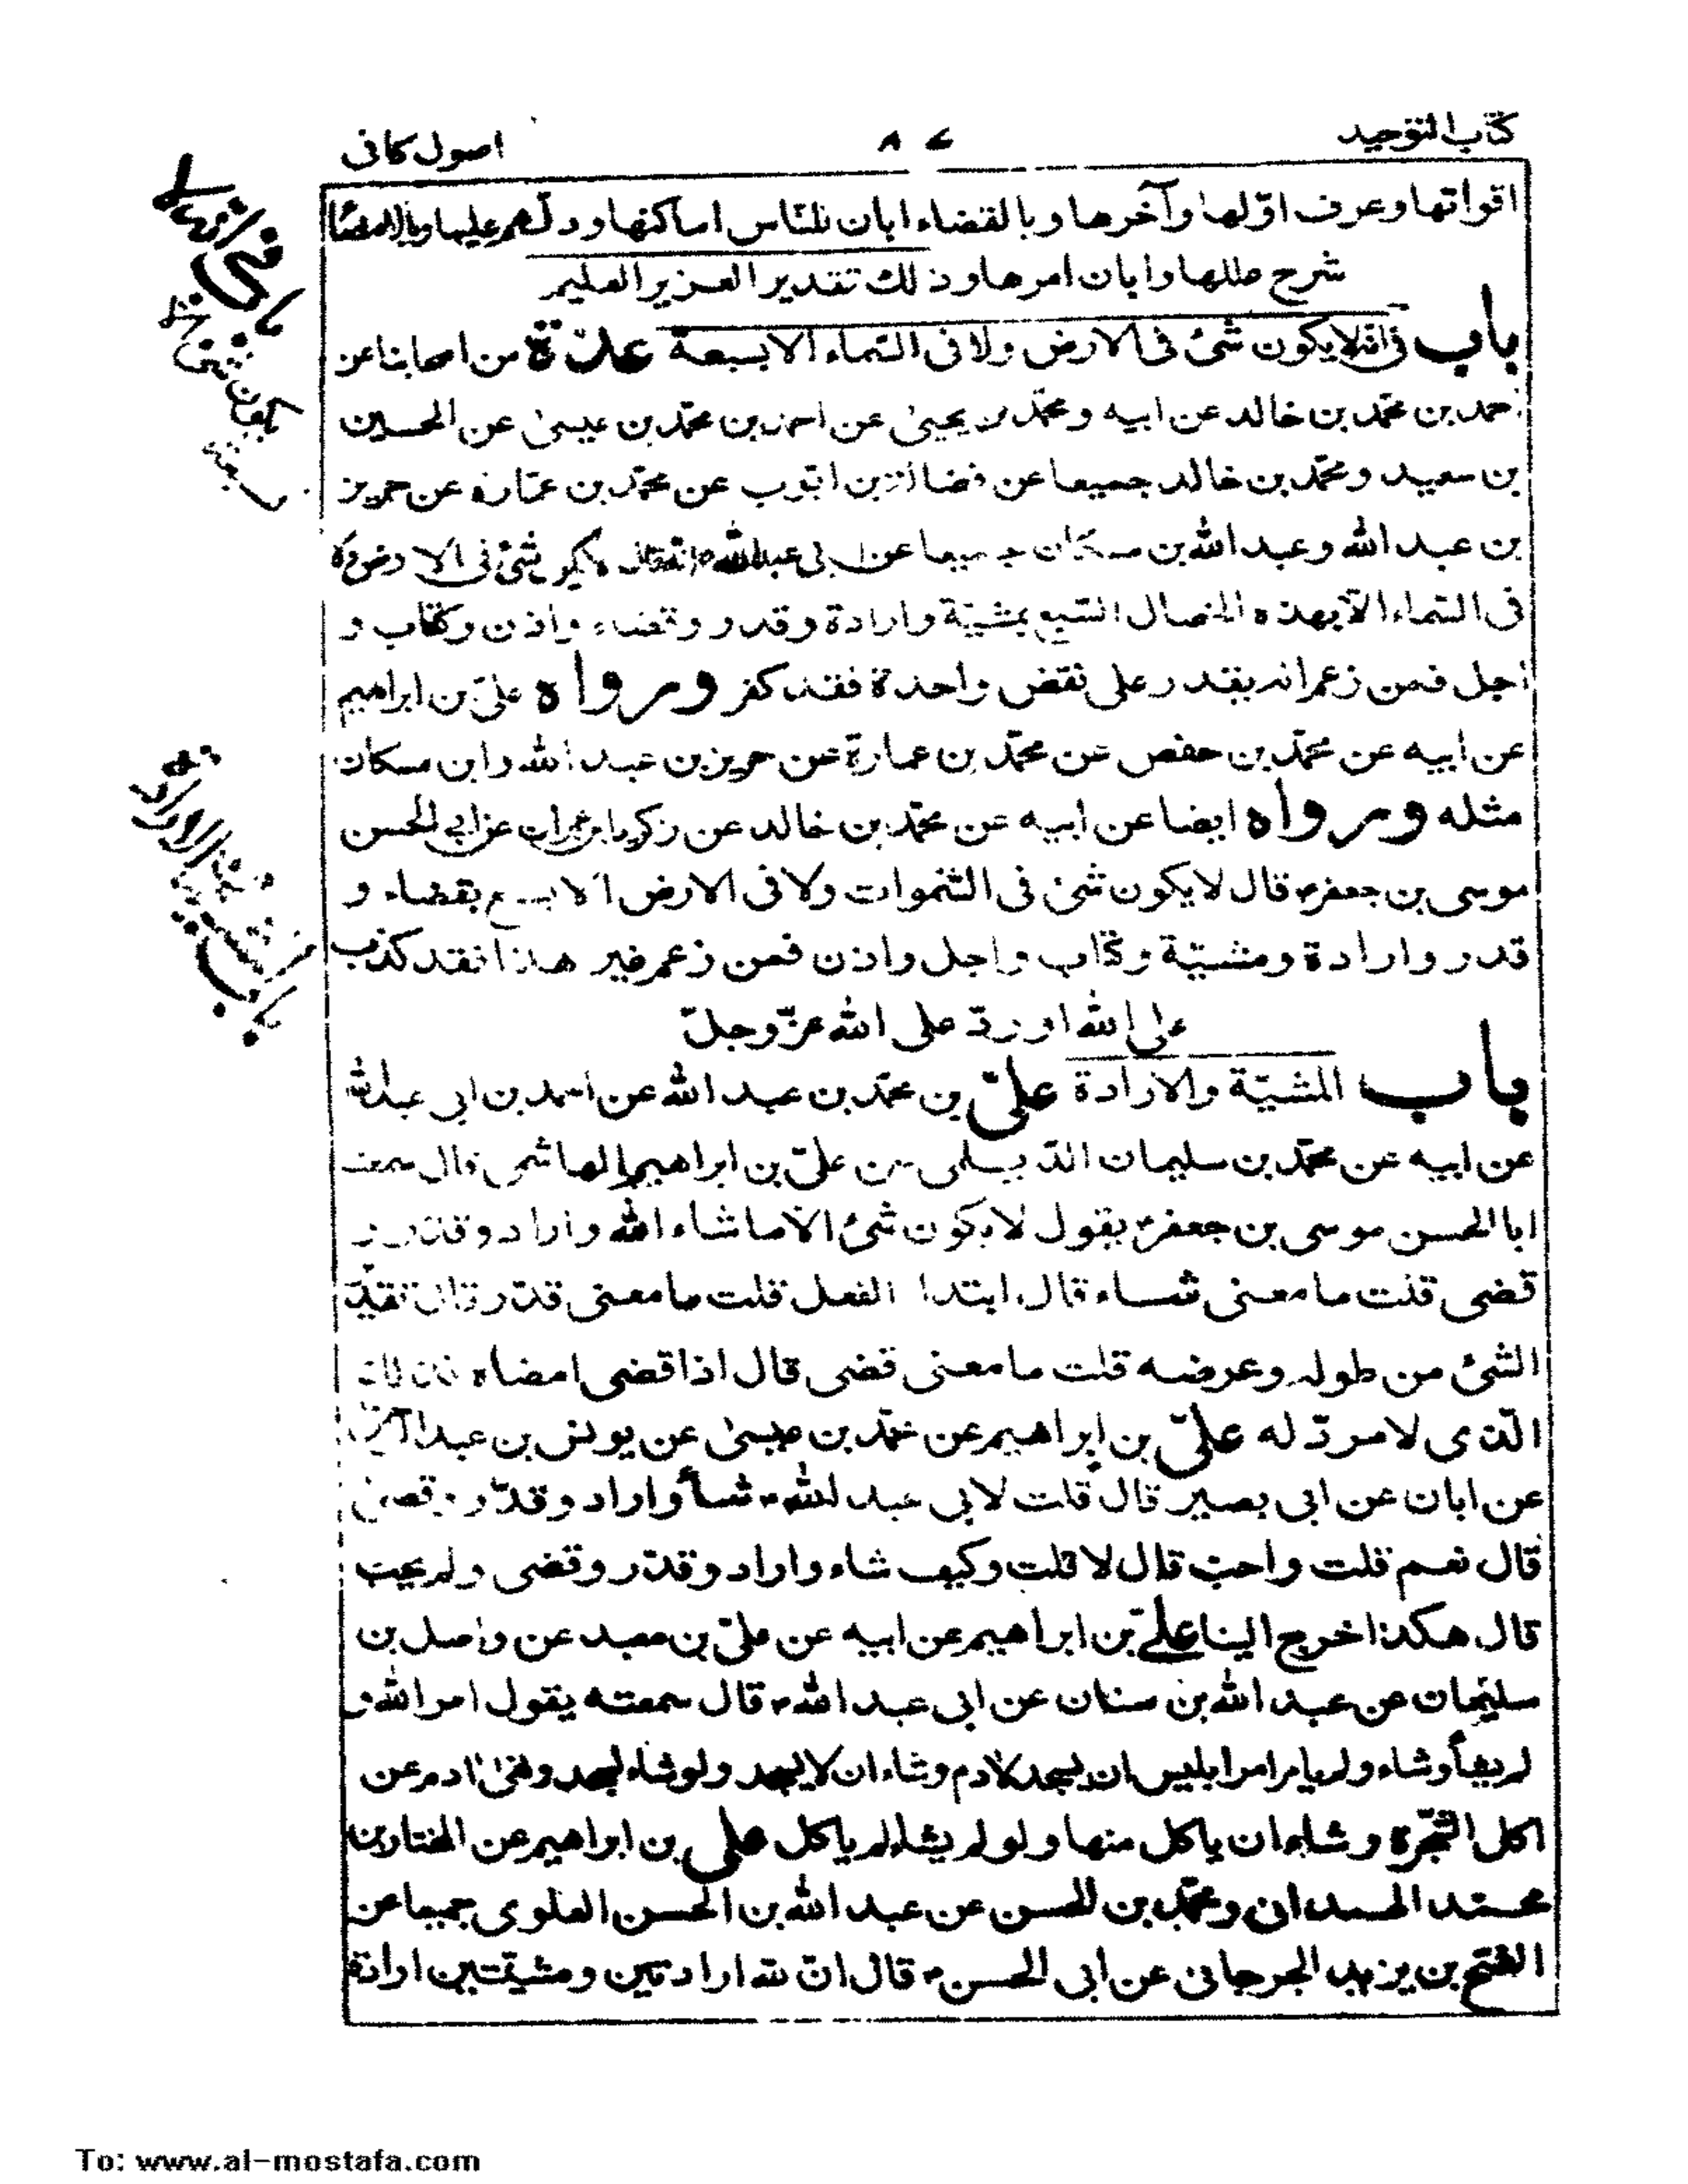 كتاب التوحيد
٨٤
اصول كافى
اقواتها وعرف اوّلها وآخرها وبالقضاء ابان للنّاس اماكنها ودلّهم عليها وبالامضا
شرح عللها وابان امرها وذلك تقدير العزيز العليم
باب فى انه لا يكون شئ فى الارض ولا فى السّماء الا بسبعة عدّة من اصحابنا عن
احمد بن محمّد بن خالد عن ابيه ومحمّد بن يحيىٰ عن احمد بن محمّد بن عيسىٰ عن الحسين
بن سعيد ومحمّد بن خالد جميعا عن فضالة بن ايّوب عن محمّد بن عمّارة عن حريز
بن عبد الله وعبد الله بن مسكان جميعا عن ابى عبد الله انه قال لا يكون شئ فى الارض ولا
فى السّماء الّا بهذه الخصال السّبع بمشيّة وارادة وقدر وقضاء واذن وكتاب و
اجل فمن زعم انه يقدر على نقض واحدة فقد كفر ورواه علىّ بن ابراهيم
عن ابيه عن محمّد بن حفص عن محمّد بن عمارة عن حريز بن عبد الله وابن مسكان
مثله ورواه ايضا عن ابيه عن محمّد بن خالد عن زكريا بن عمران عن ابى الحسن
موسى بن جعفر ع قال لا يكون شئ فى السّموات ولا فى الارض الا بسبع بقضاء و
قدر وارادة ومشيّة وكتاب واجل واذن فمن زعم غير هذا فقد كذب
على الله او ردّ على الله عزّ وجلّ
باب المشيّة والارادة علىّ بن محمّد بن عبد الله عن احمد بن ابى عبد الله
عن ابيه عن محمّد بن سليمان الدّيلمى عن علىّ بن ابراهيم الهاشمى قال سمعت
ابا الحسن موسى بن جعفر ع يقول لا يكون شئ الا ما شاء الله واراد وقدر و
قضى قلت ما معنى شاء قال ابتدا الفعل قلت ما معنى قدّر قال تقدير
الشئ من طوله وعرضه قلت ما معنى قضى قال اذا قضى امضاه فذلك
الّذى لا مردّ له علىّ بن ابراهيم عن محمّد بن عيسىٰ عن يونس بن عبد الرحمن
عن ابان عن ابى بصير قال قلت لابى عبد الله ع شاء واراد وقدّر وقضى
قال نعم قلت واحبّ قال لا قلت وكيف شاء واراد وقدّر وقضى ولم يحب
قال هكذا خرج الينا علىّ بن ابراهيم عن ابيه عن علىّ بن معبد عن واصل بن
سليمان عن عبد الله بن سنان عن ابى عبد الله ع قال سمعته يقول امر الله و
لم يشأ وشاء ولم يامر امر ابليس ان يسجد لادم وشاء ان لا يسجد ولو شاء لسجد ونهى ادم عن
اكل الشّجرة وشاء ان ياكل منها ولو لم يشاء لم ياكل علىّ بن ابراهيم عن المختار بن
محمّد الهمدانى ومحمّد بن الحسن عن عبد الله بن الحسن العلوى جميعا عن
الفتح بن يزيد الجرجانى عن ابى الحسن ع قال انّ لله ارادتين ومشيّتين ارادة
باب فى انه لا
يكون شئ
بسبعة
باب المشية والارادة
To: www.al-mostafa.com